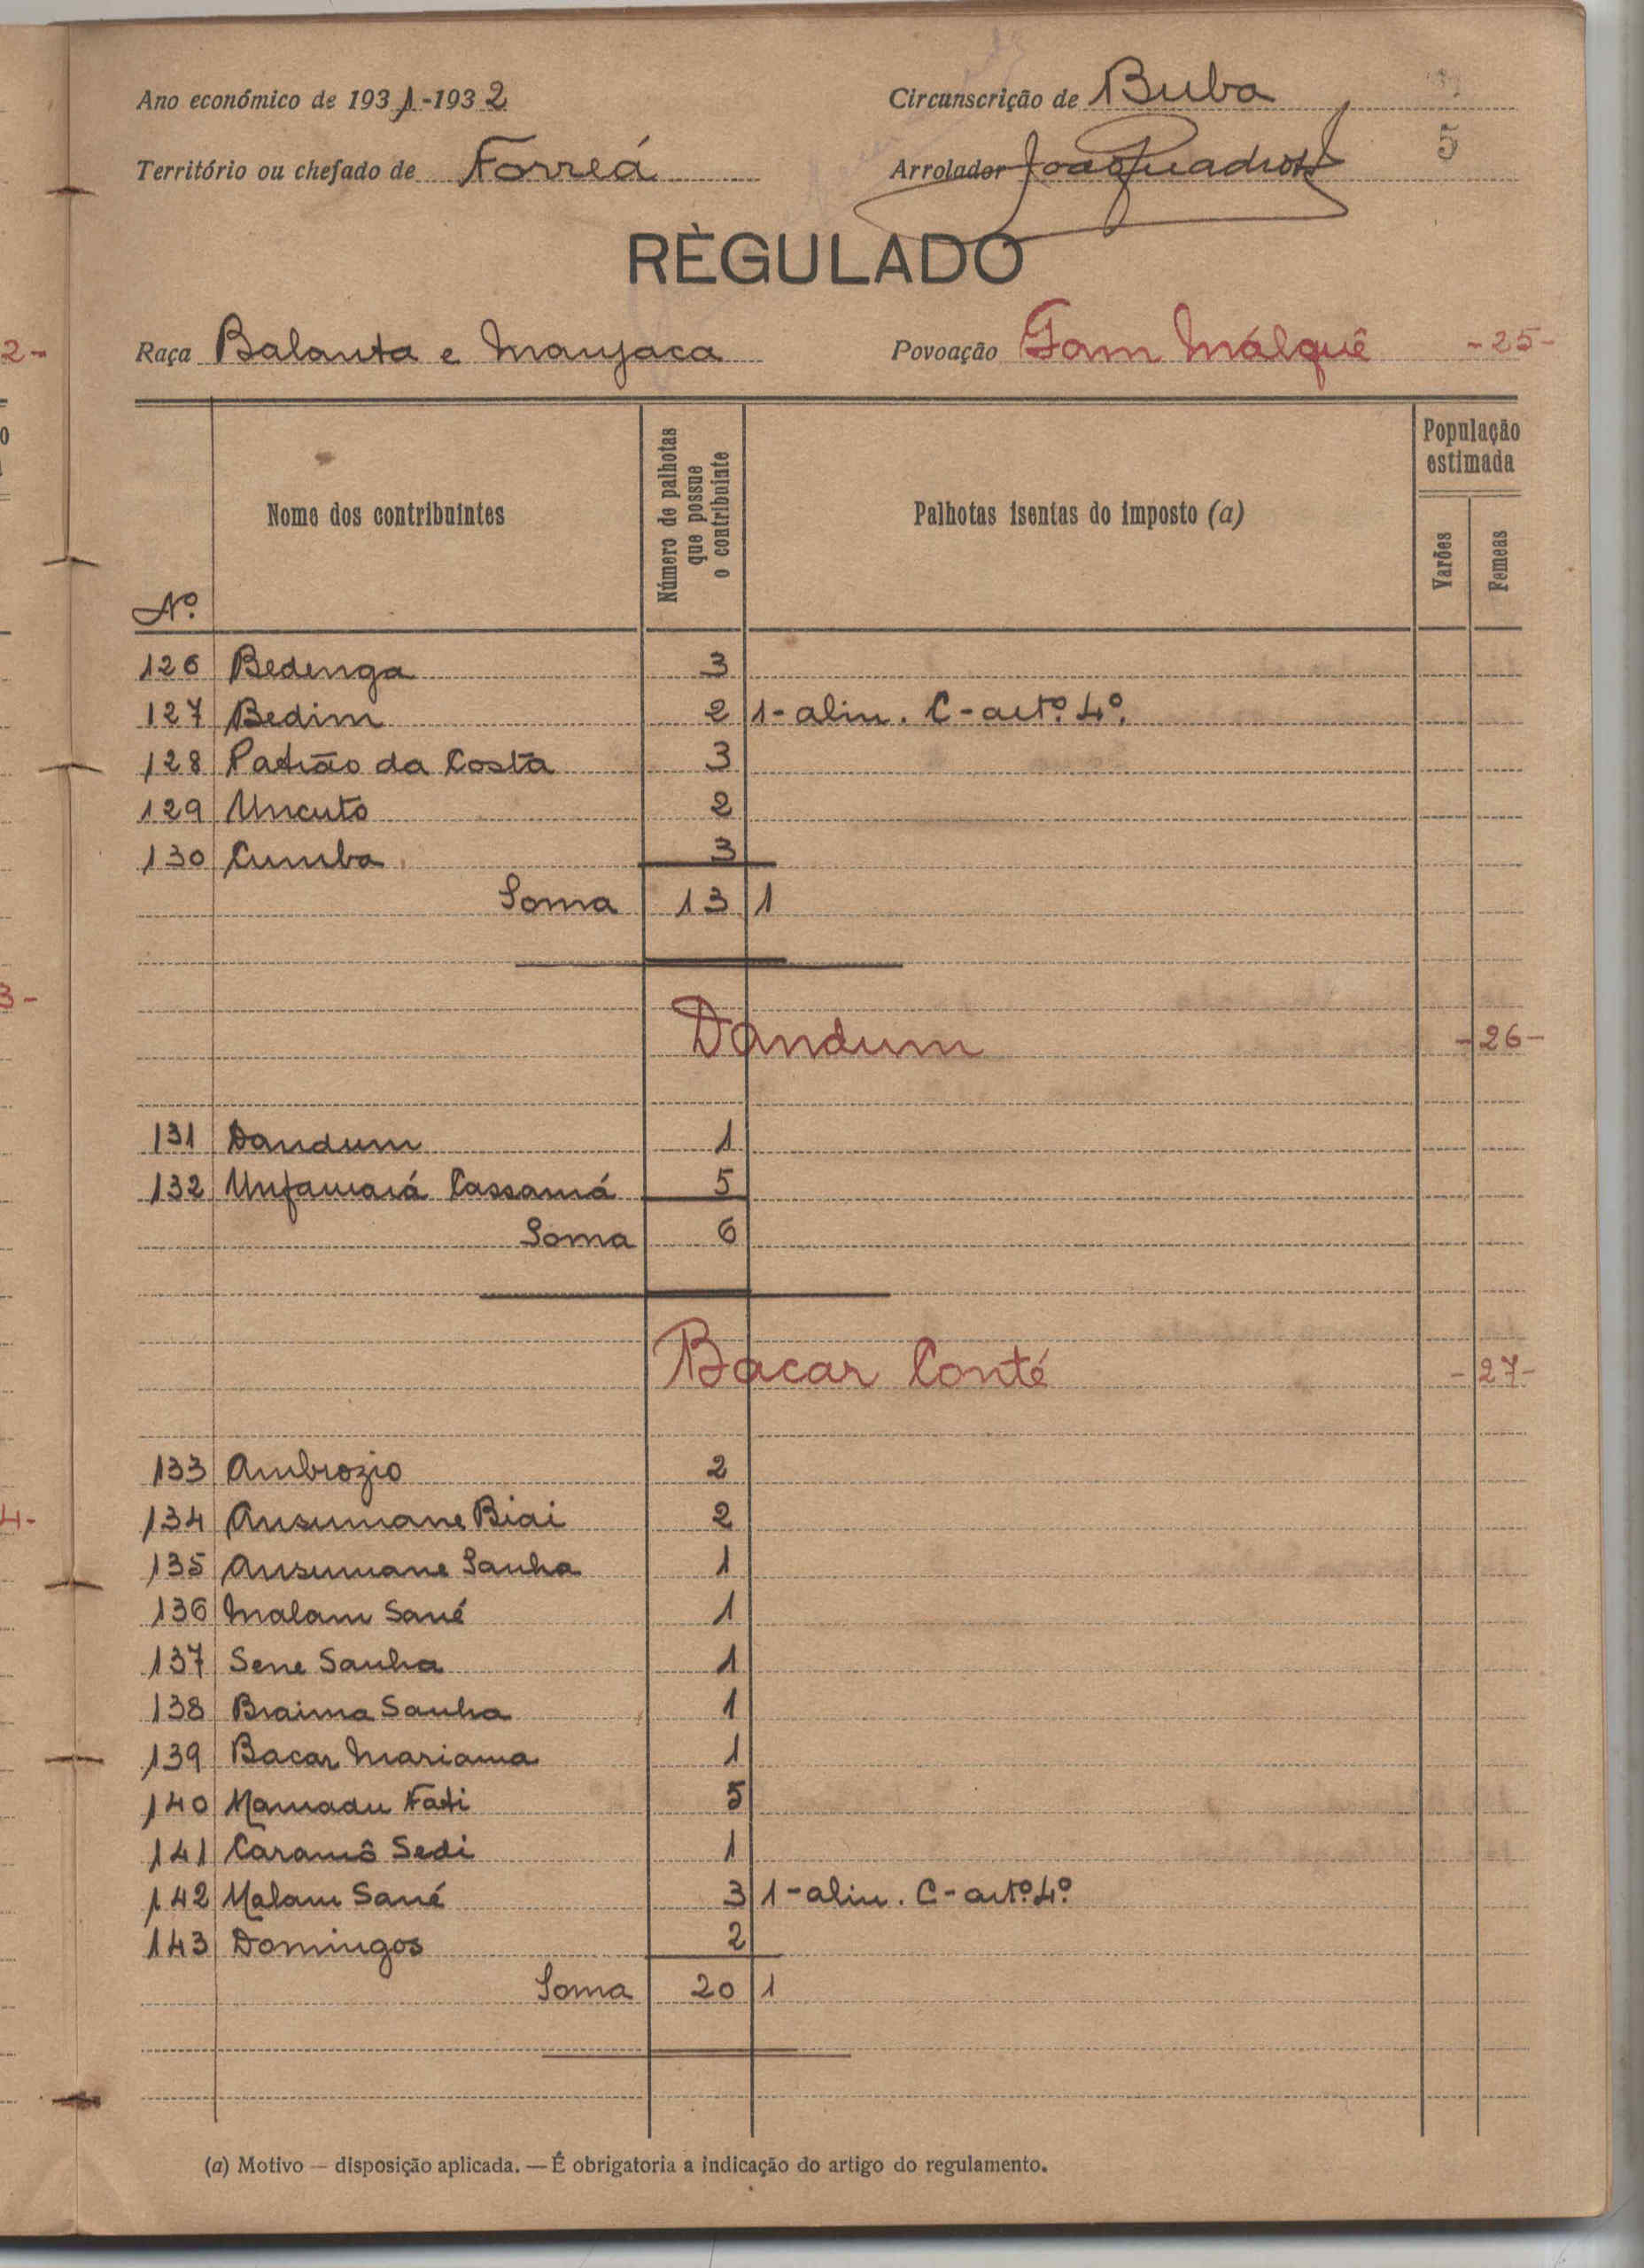 Ano económico de 1931-1932
Circunscrição de Buba
Território ou chefado de Forreá
Arrolador
5
RÈGULADO
Raça Balanta e Manjaca
Povoação Tam Málquê -25-
Nº
Nome dos contribuintes
Número de palhotas que possue o contribuinte
Palhotas isentas do imposto (a)
População estimada
Varões
Femeas
126 Bedenga 3
127 Bedim 2 1-alin. C-artº 4º.
128 Padrão da Costa 3
129 Uncuto 2
130 Cumba 3
Soma 13 1
Dandum -26-
131 Dandum 1
132 Unfamará Cassamá 5
Soma 6
Bacar Conté -27-
133 Ambrozio 2
134 Ansumane Biai 2
135 Ansumane Sanha 1
136 Malam Sané 1
137 Sene Sanha 1
138 Braima Sanha 1
139 Bacar Mariama 1
140 Mamadu Fati 5
141 Caramô Sedi 1
142 Malam Sané 3 1-alin. C-artº 4º
143 Domingos 2
Soma 20 1
(a) Motivo — disposição aplicada. — É obrigatoria a indicação do artigo do regulamento.
2-
3-
4-